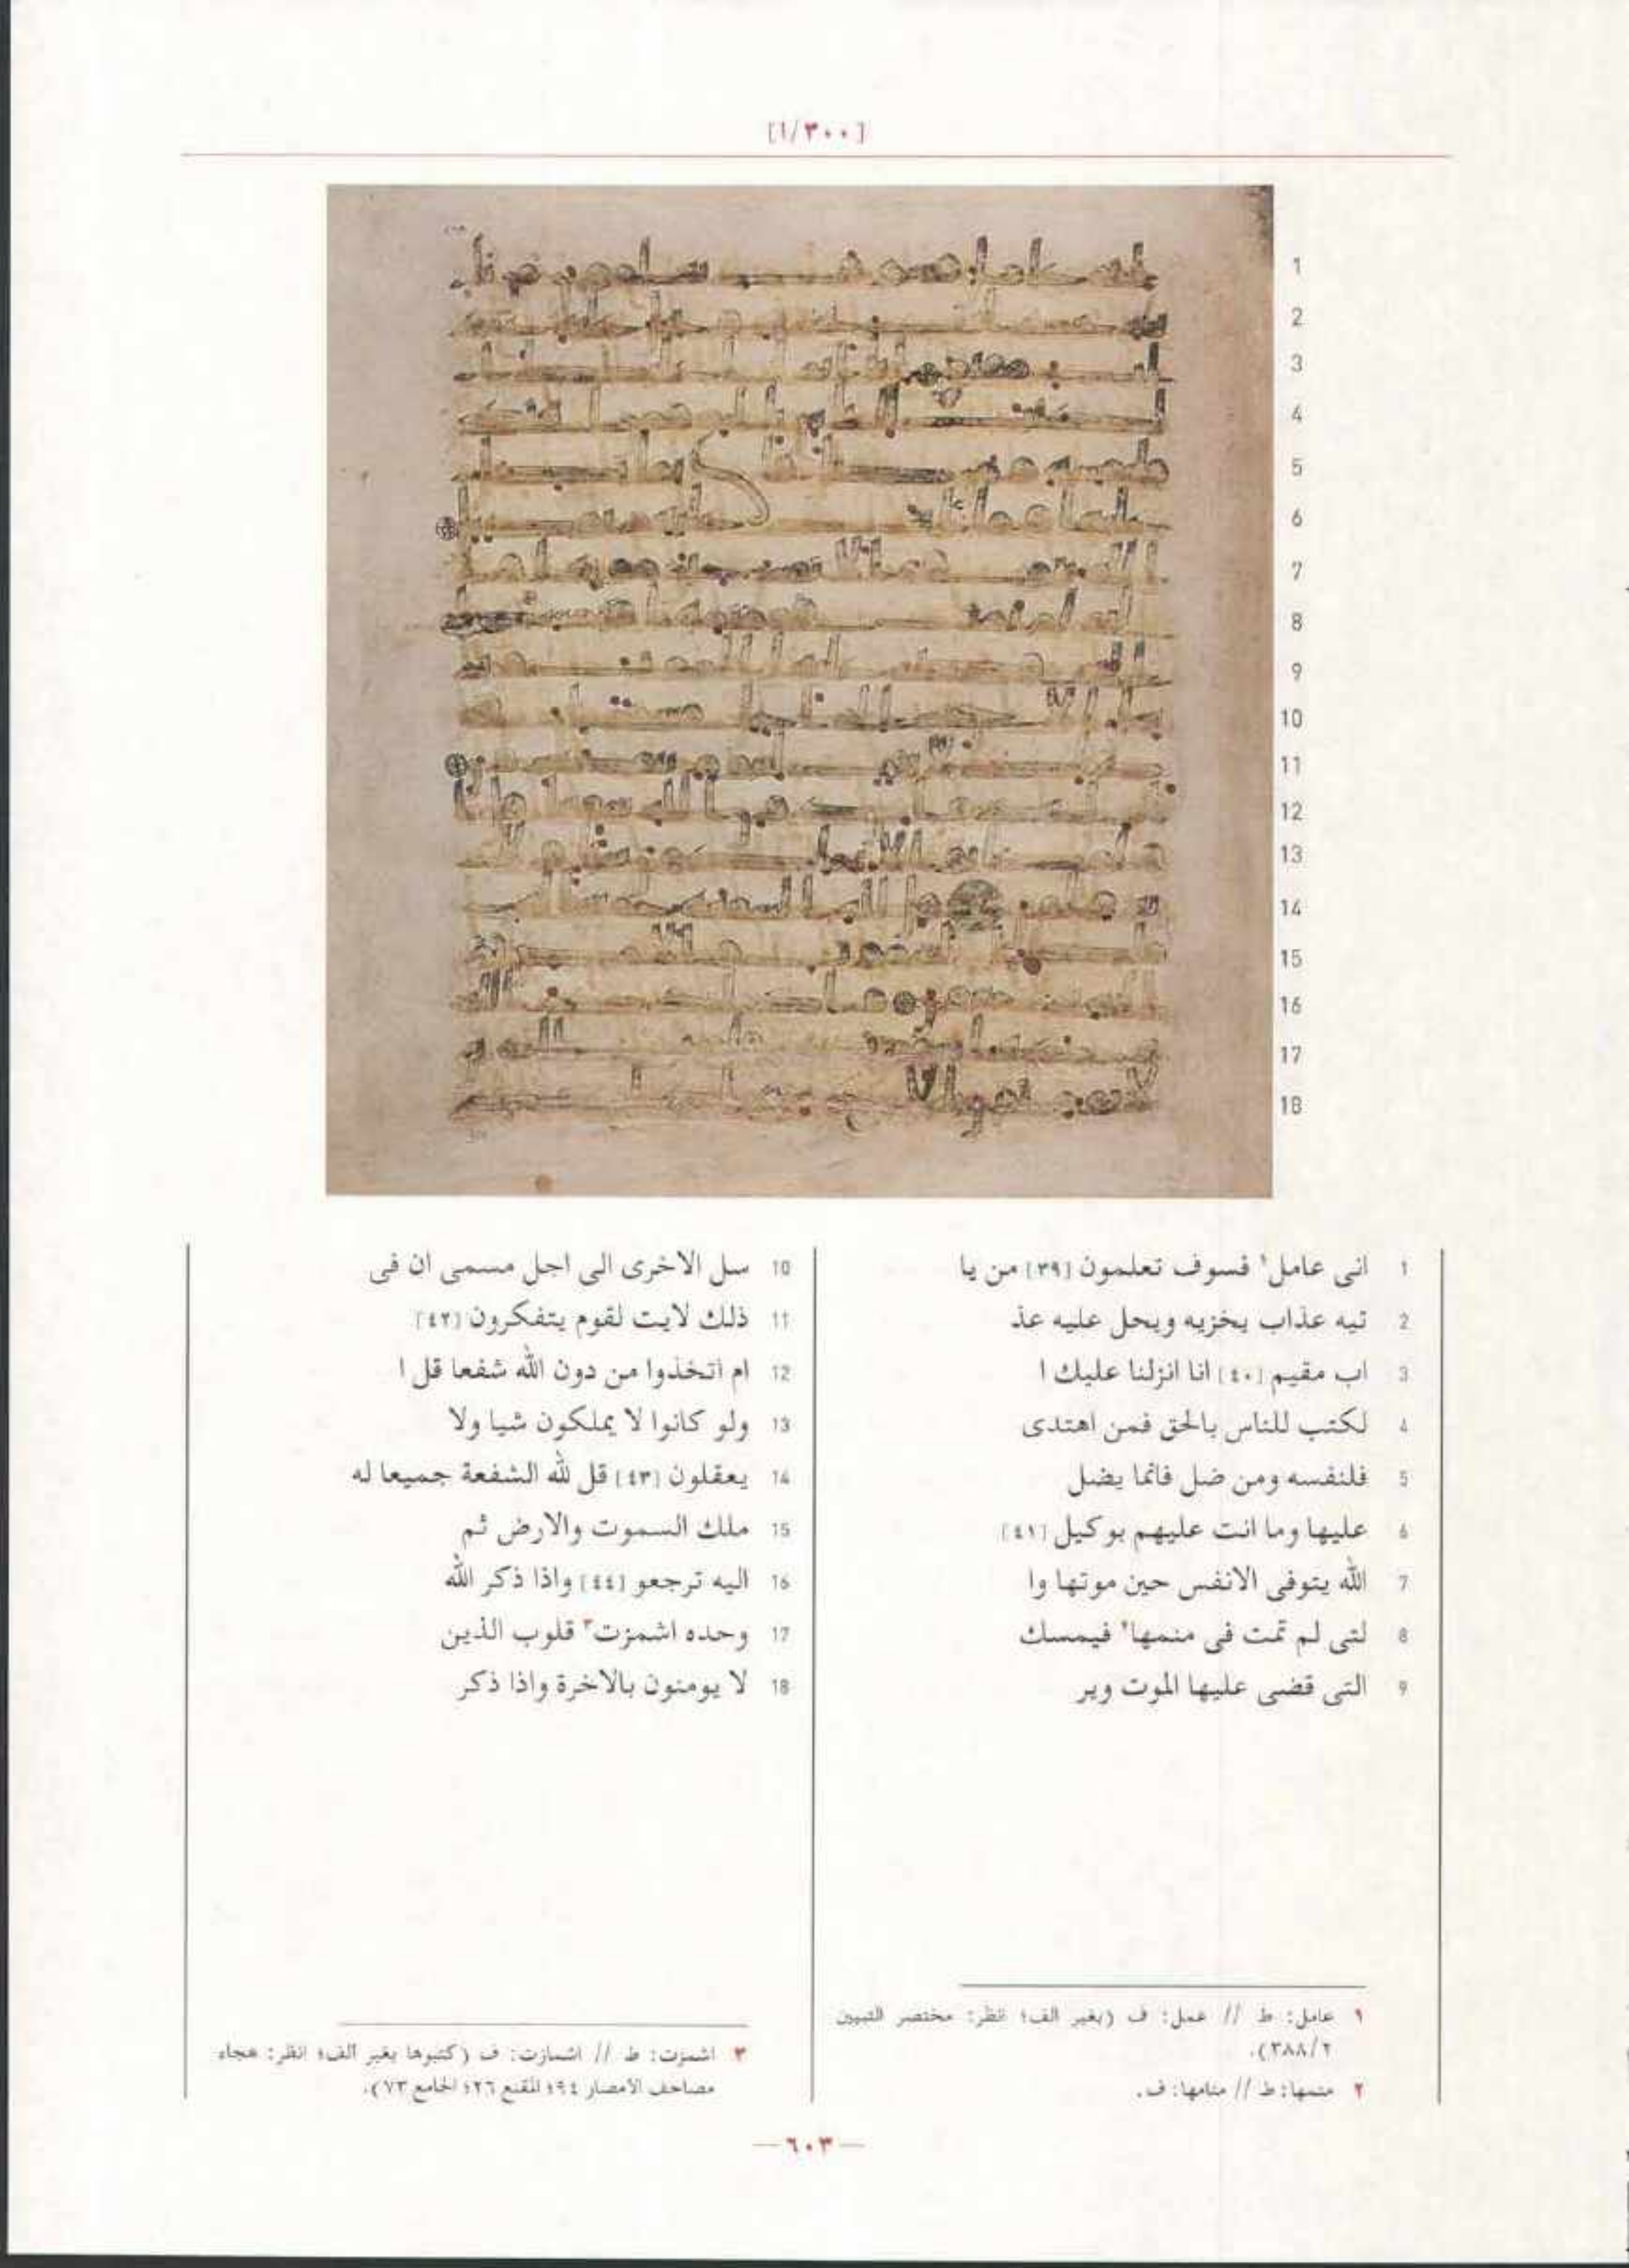 [١/٣٠٠]
1
2
3
4
5
6
7
8
9
10
11
12
13
14
15
16
17
18
1 انى عامل١ فسوف تعلمون [٣٩] من يا
2 تيه عذاب يخزيه ويحل عليه عذ
3 اب مقيم [٤٠] انا انزلنا عليك ا
4 لكتب للناس بالحق فمن اهتدى
5 فلنفسه ومن ضل فانما يضل
6 عليها وما انت عليهم بوكيل [٤١]
7 الله يتوفى الانفس حين موتها وا
8 لتى لم تمت فى منمها٢ فيمسك
9 التى قضى عليها الموت وير
10 سل الاخرى الى اجل مسمى ان فى
11 ذلك لايت لقوم يتفكرون [٤٢]
12 ام اتخذوا من دون الله شفعا قل ا
13 ولو كانوا لا يملكون شيا ولا
14 يعقلون [٤٣] قل لله الشفعة جميعا له
15 ملك السموت والارض ثم
16 اليه ترجعو [٤٤] واذا ذكر الله
17 وحده اشمزت٣ قلوب الذين
18 لا يومنون بالاخرة واذا ذكر
١ عامل: ط // عمل: ف (بغير الف؛ انظر: مختصر التبيين
٣٨٨/٢).
٢ منمها: ط // منامها: ف.
٣ اشمزت: ط // اشمازت: ف (كتبوها بغير الف؛ انظر: هجاء
مصاحف الامصار ٩٤؛ المقنع ٢٦؛ الجامع ٧٣).
— ٦٠٣ —